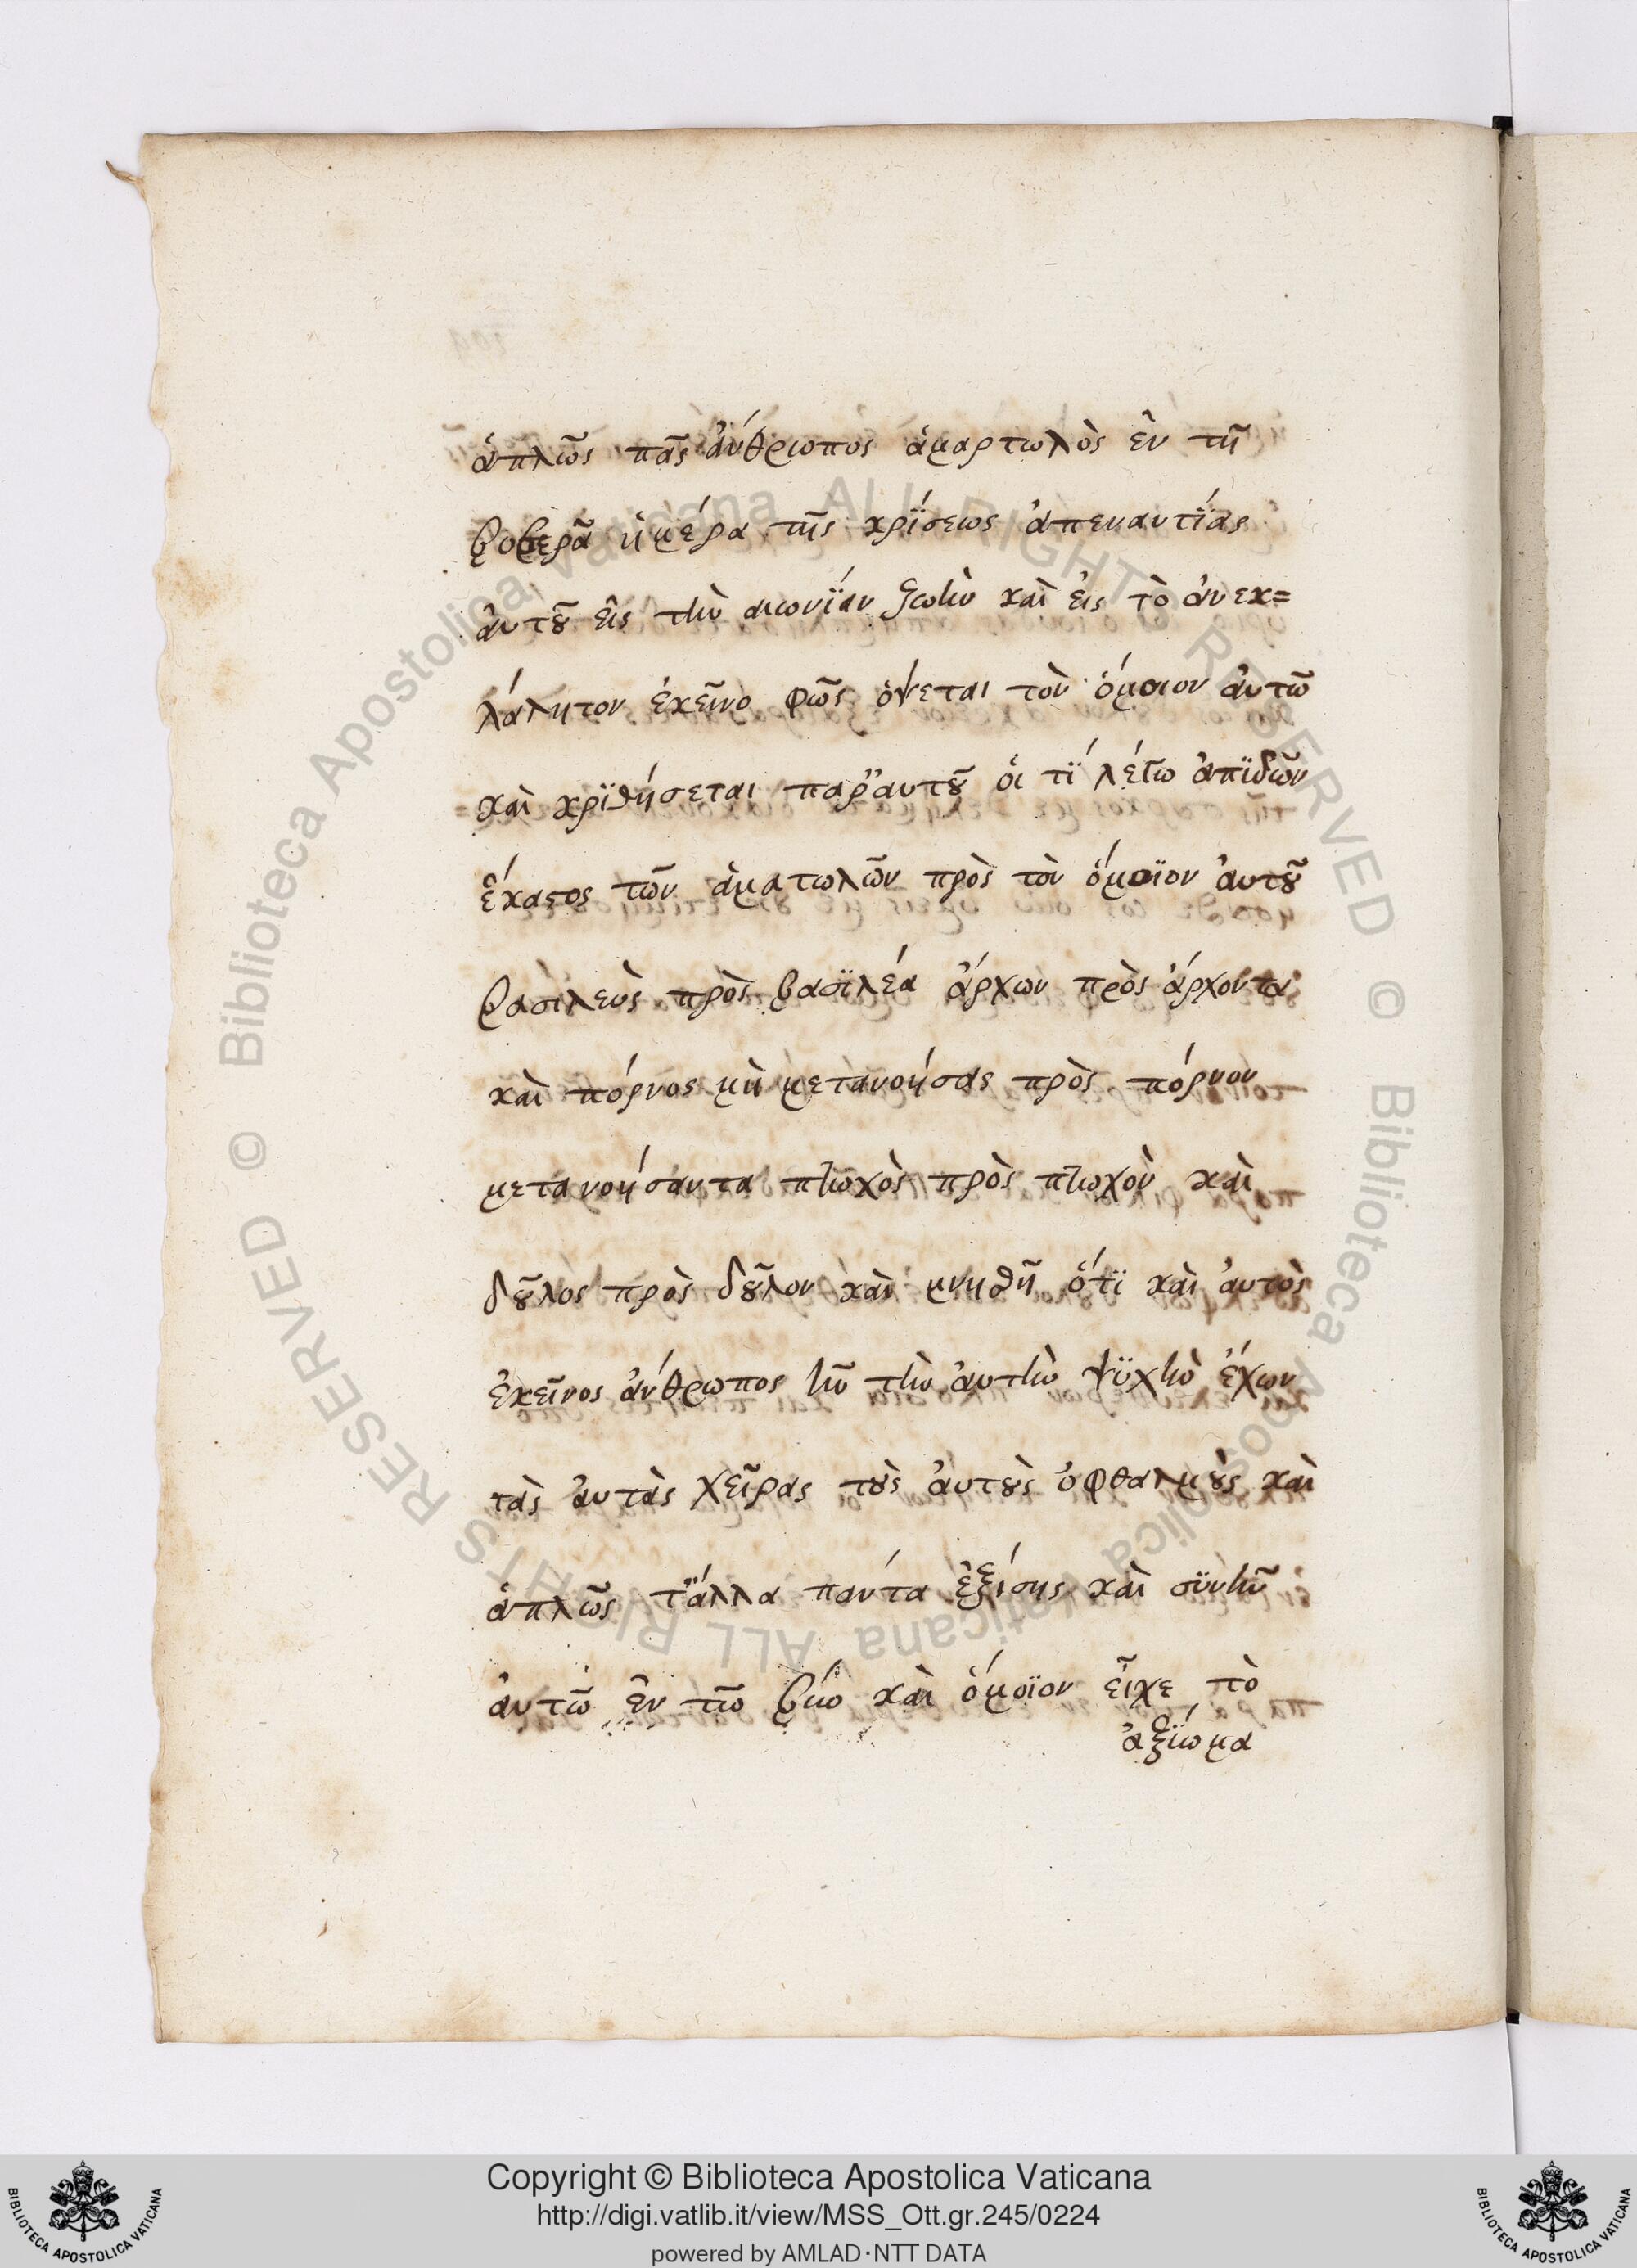 ἁπλῶς πᾶς ἄνθρωπος ἁμαρτωλὸς ἐν τῆ
φοβερᾶ ἡμέρα τῆς κρίσεως ἀπεναντίας
ἀυτοῦ εἰς τὴν αιωνίαν ζωὴν καὶ εἰς τὸ ἀνεκ=
λάλητον ἐκεῖνο φῶς ὄψεται τὸν ὅμοιον ἀυτῶ
καὶ κριθήσεται παρ' αυτοῦ οἱ τί λέγω ἀπιδὼν
ἕκαστος τῶν ἁματωλῶν πρὸς τὸν ὅμοιον ἀυτοῦ
βασιλεὺς πρὸς βασιλέα ἄρχων πρὸς ἄρχοντα
καὶ πόρνος μὴ μετανοήσας πρὸς πόρνον
μετανοήσαντα πτωχὸς πρὸς πτωχὸν καὶ
δοῦλος πρὸς δοῦλον καὶ μνηθῆ ὅτι καὶ ἀυτὸς
ἐκεῖνος ἄνθρωπος ἦν τὴν ἀυτὴν ψυχὴν ἔχων
τὰς ἀυτὰς χεῖρας τοὺς ἀυτοὺς ὀφθαλμοὺς καὶ
ἁπλῶς τἄλλα παντα ἐξίσης καὶ συνῆν
ἀυτῶ ἐν τῶ βίω καὶ ὅμοιον εἶχε τὸ
ἀξίωμα
Copyright © Biblioteca Apostolica Vaticana
http://digi.vatlib.it/view/MSS_Ott.gr.245/0224
powered by AMLAD·NTT DATA
BIBLIOTECA APOSTOLICA VATICANA
BIBLIOTECA APOSTOLICA VATICANA
© Biblioteca Apostolica Vaticana ALL RIGHTS RESERVED © Biblioteca Apostolica Vaticana ALL RIGHTS RESERVED